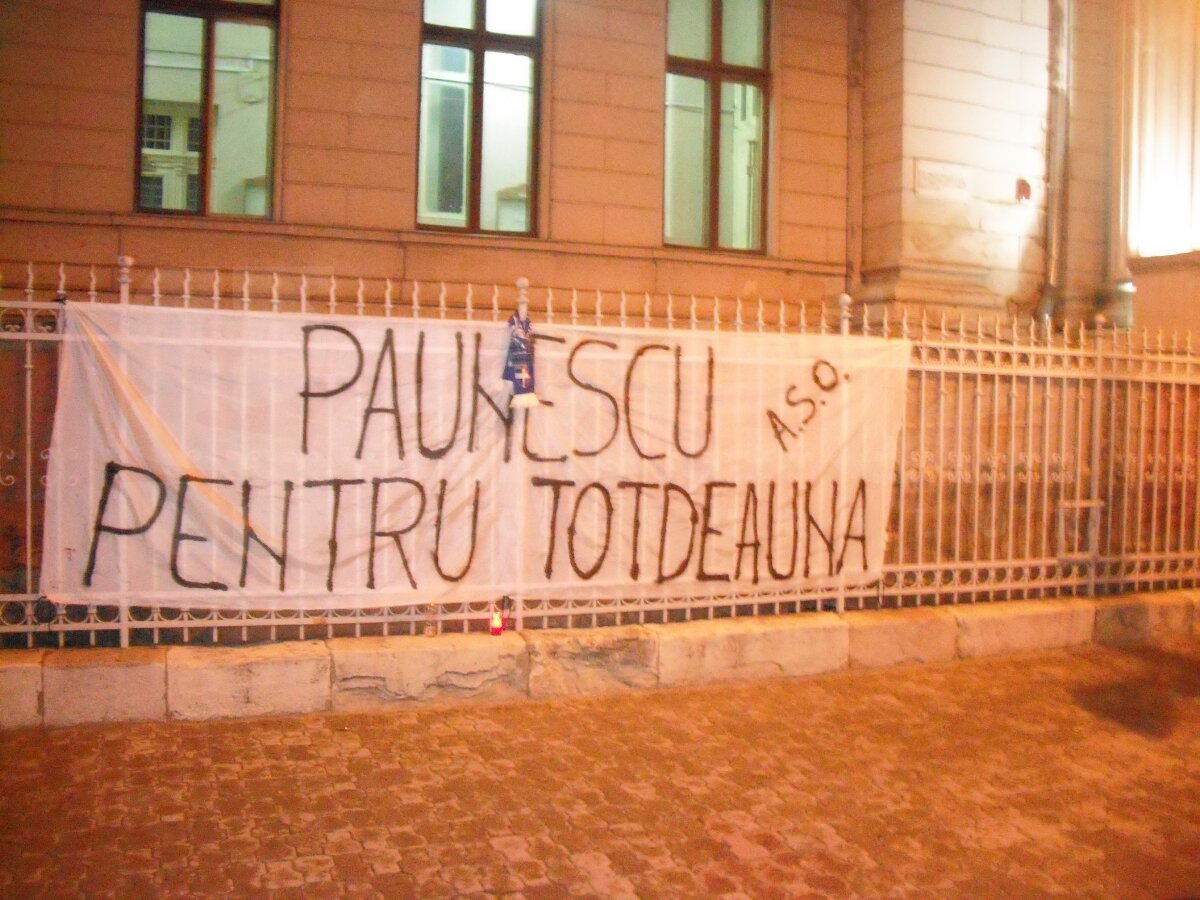 PAUNESCU
A.S.O.
PENTRU TOTDEAUNA